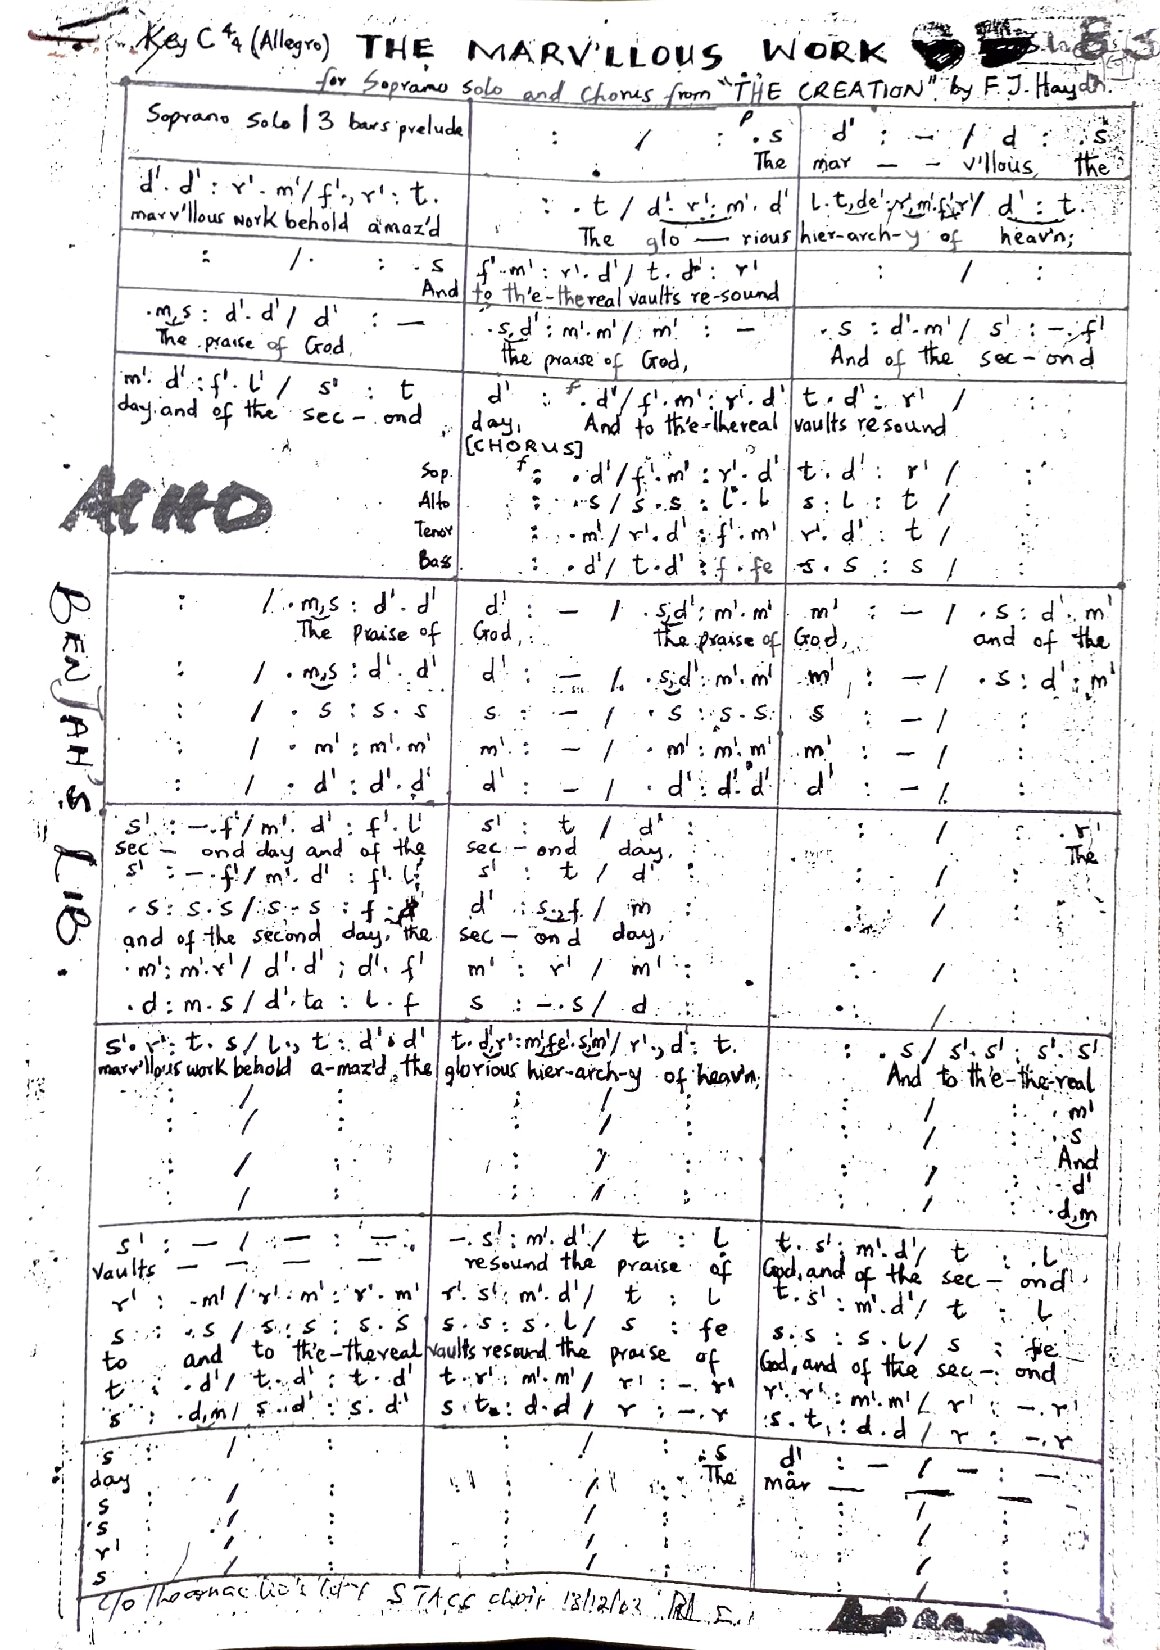 Key C 4/4 (Allegro) THE MARV'LLOUS WORK
for Soprano Solo and Chorus from "THE CREATION" by F.J. Haydn.
Soprano Solo | 3 bars prelude : / : p .s d' : — / d : .s'
The mar — — v'llous, the
d'. d' : r'. m' / f'., r' : t. : . t / d'. r' : m'. d' l. t,de' : r',m'.f',r' / d' : t.
marv'llous work behold amaz'd The glo — rious hier-arch-y of heav'n;
: / . : . s f'. m' : r'. d' / t. d' : r' : / :
And to th'e-thereal vaults re-sound
.m,s : d'. d' / d' : — .s,d' : m'. m' / m' : — . s : d'. m' / s' : —. f'
The praise of God, the praise of God, And of the sec — ond
m'. d' : f'. l' / s' : t d' : f . d' / f'. m' : r'. d' t. d' : r' / :
day and of the sec — ond day, And to th'e-thereal vaults resound
[CHORUS]
Sop. f : . d' / f'. m' : r'. d' t. d' : r' / :
Alto : . s / s. s : l. l s : l : t / :
Tenor : . m' / r'. d' : f'. m' r'. d' : t / :
Bass : . d' / t. d' : f. fe s. s : s / :
ACHHO
BENJAH'S LIB.
: / . m,s : d'. d' d' : — / . s,d' : m'. m' m' : — / . s : d'. m'
The praise of God, the praise of God, and of the
: / . m,s : d'. d' d' : — / . s,d' : m'. m' m' : — / . s : d' : m'
: / . s : s. s s : — / . s : s. s s : — / :
: / . m' : m'. m' m' : — / . m' : m'. m' m' : — / :
: / . d' : d'. d' d' : — / . d' : d'. d' d' : — / :
s' : —. f' / m'. d' : f'. l' s' : t / d' : : / : . r'
sec — ond day and of the sec — ond day, The
s' : —. f' / m'. d' : f'. l' s' : t / d' : : / :
. s : s. s / s. s : f d' : s. f / m : : / :
and of the second day, the sec — ond day,
. m' : m'. r' / d'. d' : d'. f' m' : r' / m' : : / :
. d : m. s / d'. ta : l. f s : —. s / d : : / :
s'. r' : t. s / l., t : d'. d' t. d',r' : m',fe'. s',m' / r'., d' : t. : . s / s'. s' : s'. s'
marv'llous work behold a-maz'd, the glorious hier-arch-y of heav'n; And to th'e-the-real
: / : : / : : / : . m'
: / : : / : : / : . s
And
: / : : / : : / : . d'
: / : : / : : / : . d,m
s' : — / — : — —. s' : m'. d' / t : l t. s' : m'. d' / t : . l
vaults — — — — resound the praise of God, and of the sec — ond
r' : . m' / r'. m' : r'. m' r'. s' : m'. d' / t : l t. s' : m'. d' / t : l
s : . s / s : s : s. s s. s : s. l / s : fe s. s : s. l / s : fe
to and to th'e-thereal vaults resound the praise of God, and of the sec — ond
t : . d' / t. d' : t. d' t. r' : m'. m' / r' : —. r' r'. r' : m'. m' / r' : —. r'
s : . d,m / s. d' : s. d' s. t, : d. d / r : —. r s. t, : d. d / r : —. r
s : / : : / : . s d' : — / — : —
day The mar — — —
s : / : : / : : / :
s : / : : / : : / :
r' : / : : / : : / :
s : / : : / : : / :
choir 18/12/03